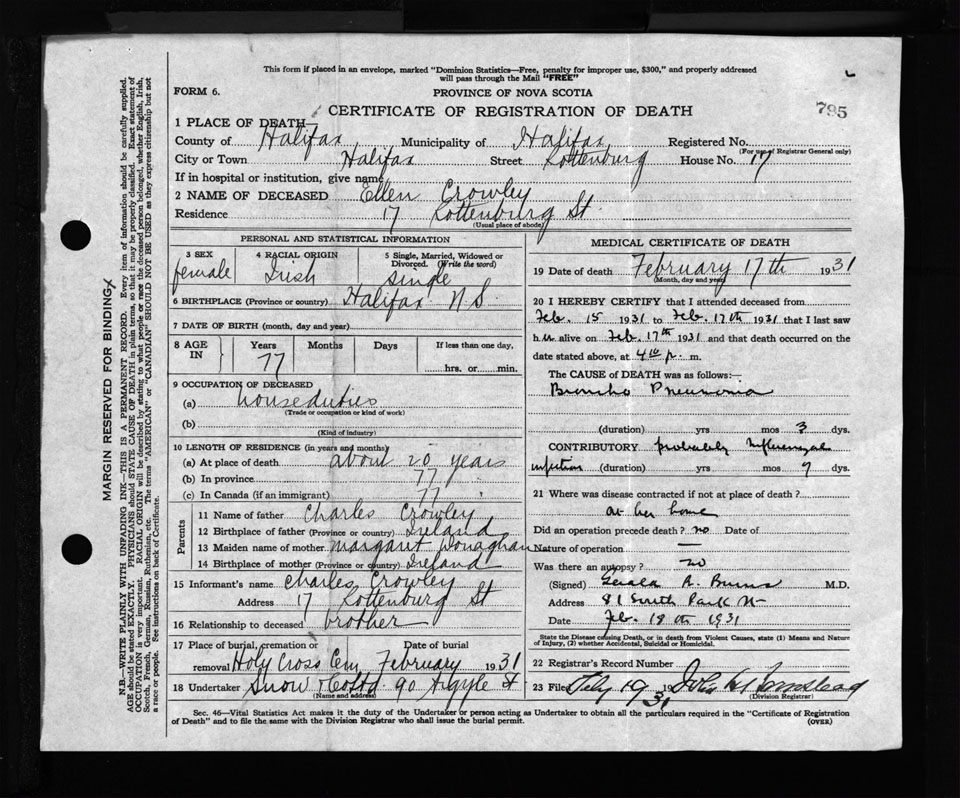 This form if placed in an envelope, marked "Dominion Statistics—Free, penalty for improper use, $300," and properly addressed
will pass through the Mail "FREE"
FORM 6.
PROVINCE OF NOVA SCOTIA
CERTIFICATE OF REGISTRATION OF DEATH
795
1 PLACE OF DEATH—
County of Halifax Municipality of Halifax Registered No.
(For use of Registrar General only)
City or Town Halifax Street Lottenburg House No. 17
If in hospital or institution, give name
2 NAME OF DECEASED Ellen Crowley
Residence 17 Lottenburg St.
(Usual place of abode)
PERSONAL AND STATISTICAL INFORMATION
3 SEX female
4 RACIAL ORIGIN Irish
5 Single, Married, Widowed or Divorced. (Write the word) single
6 BIRTHPLACE (Province or country) Halifax N S.
7 DATE OF BIRTH (month, day and year)
8 AGE IN Years Months Days If less than one day,
77 hrs. or min.
9 OCCUPATION OF DECEASED
(a) houseduties
(Trade or occupation or kind of work)
(b)
(Kind of industry)
10 LENGTH OF RESIDENCE (in years and months)
(a) At place of death about 20 years
(b) In province 77
(c) In Canada (if an immigrant) 77
Parents
11 Name of father Charles Crowley
12 Birthplace of father (Province or country) Ireland
13 Maiden name of mother Margaret Donaghan
14 Birthplace of mother (Province or country) Ireland
15 Informant's name Charles Crowley
Address 17 Lottenburg St
16 Relationship to deceased brother
17 Place of burial, cremation or removal Date of burial
Holy Cross Cem February 1931
18 Undertaker Snow & Co Ltd 90 Argyle St
(Name and address)
MEDICAL CERTIFICATE OF DEATH
19 Date of death February 17th 1931
(Month, day and year)
20 I HEREBY CERTIFY that I attended deceased from
Feb. 15 1931 to Feb. 17th 1931 that I last saw
h er alive on Feb. 17th 1931 and that death occurred on the
date stated above, at 4 p. m.
The CAUSE of DEATH was as follows:—
Broncho Pneumonia
(duration) yrs mos 3 dys.
CONTRIBUTORY probably Influenzal
infection (duration) yrs mos 7 dys.
21 Where was disease contracted if not at place of death?
at her home
Did an operation precede death? no Date of
Nature of operation —
Was there an autopsy? no
(Signed) Gerald R. Burns M.D.
Address 81 South Park St
Date Feb. 18th 1931
State the Disease causing Death, or in death from Violent Causes, state (1) Means and Nature
of Injury, (2) whether Accidental, Suicidal or Homicidal.
22 Registrar's Record Number
23 Filed Feby 19 1931
(Division Registrar)
Sec. 46—Vital Statistics Act makes it the duty of Undertaker or person acting as Undertaker to obtain all the particulars required in the "Certificate of Registration
of Death" and to file the same with the Division Registrar who shall issue the burial permit.
(OVER)
MARGIN RESERVED FOR BINDING
N.B.—WRITE PLAINLY WITH UNFADING INK—THIS IS A PERMANENT RECORD. Every item of information should be carefully supplied.
AGE should be stated EXACTLY. PHYSICIANS should STATE CAUSE OF DEATH in plain terms, so that it may be properly classified. Exact statement of
OCCUPATION is very important. RACIAL ORIGIN will be described by stating to what people or race the deceased person belonged, whether English, Irish,
Scotch, French, German, Russian, Ruthenian, etc. The terms "AMERICAN" or "CANADIAN" SHOULD NOT BE USED as they express citizenship but not
a race or people. See instructions on back of Certificate.